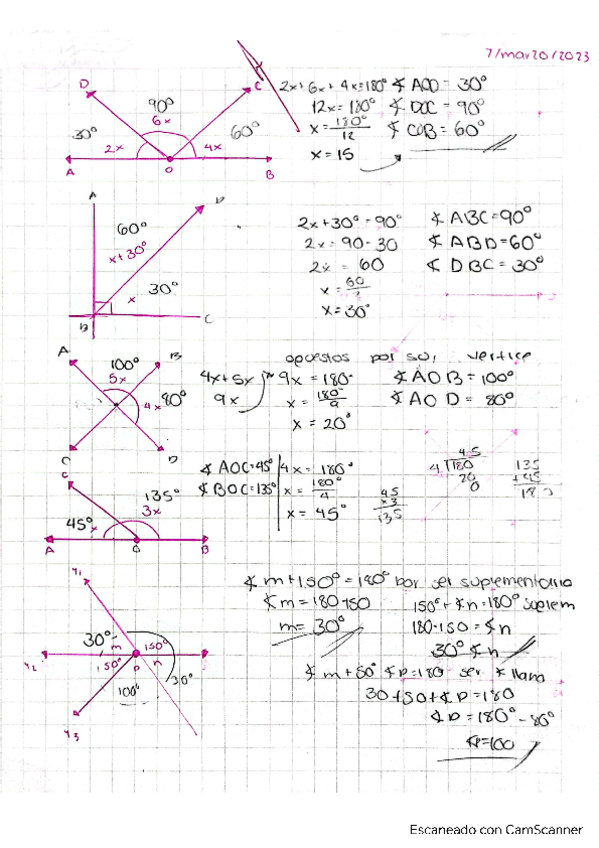 7/marzo/2023
D
C
90°
6x
30°
2x
4x
60°
A
O
B
2x+6x+4x=180°
12x=180°
x=180°/12
x=15
∢ AOD=30°
∢ DOC=90°
∢ COB=60°
A
D
60°
x+30°
30°
x
B
C
2x+30°=90°
2x=90-30
2x=60
x=60/2
x=30°
∢ ABC=90°
∢ ABD=60°
∢ DBC=30°
opuestos por su vertice
A
B
100°
5x
4x
80°
C
D
4x+5x
9x
9x=180°
x=180°/9
x=20°
∢ AOB=100°
∢ AOD=80°
C
135°
45°
3x
A
O
B
∢ AOC=45°
∢ BOC=135°
4x=180°
x=180°/4
x=45°
45
x3
135
45
4√180
20
0
135
+45
180
Y1
30°
m
150°
Y2
150°
P
n
100°
30°
Y3
∢ m+150°=180° por ser suplementario
∢ m=180-150
m=30°
150°+∢n=180° suplem
180-150=∢n
30°=∢n
∢ m+50° ∢p=180 ser ∢ llano
30+50+∢p=180
∢p=180°-80°
∢p=100
Escaneado con CamScanner